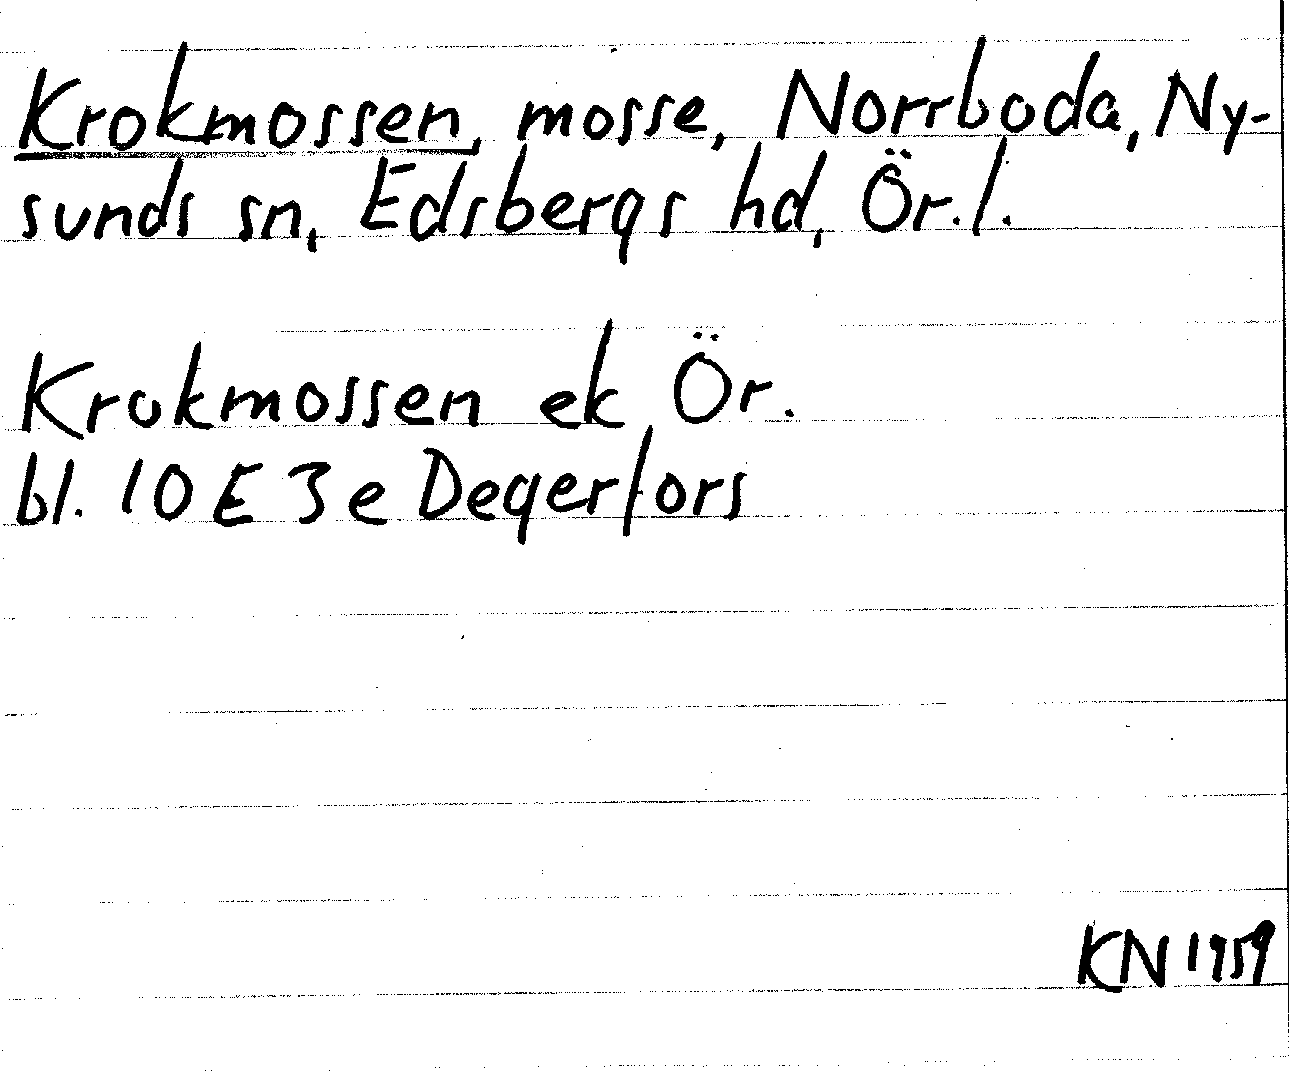 Krokmossen, mosse, Norrboda, Ny-
sunds sn, Edsbergs hd, Ör. l.
Krokmossen ek Ör.
bl. 10 E 3 e Degerfors
KN 1959